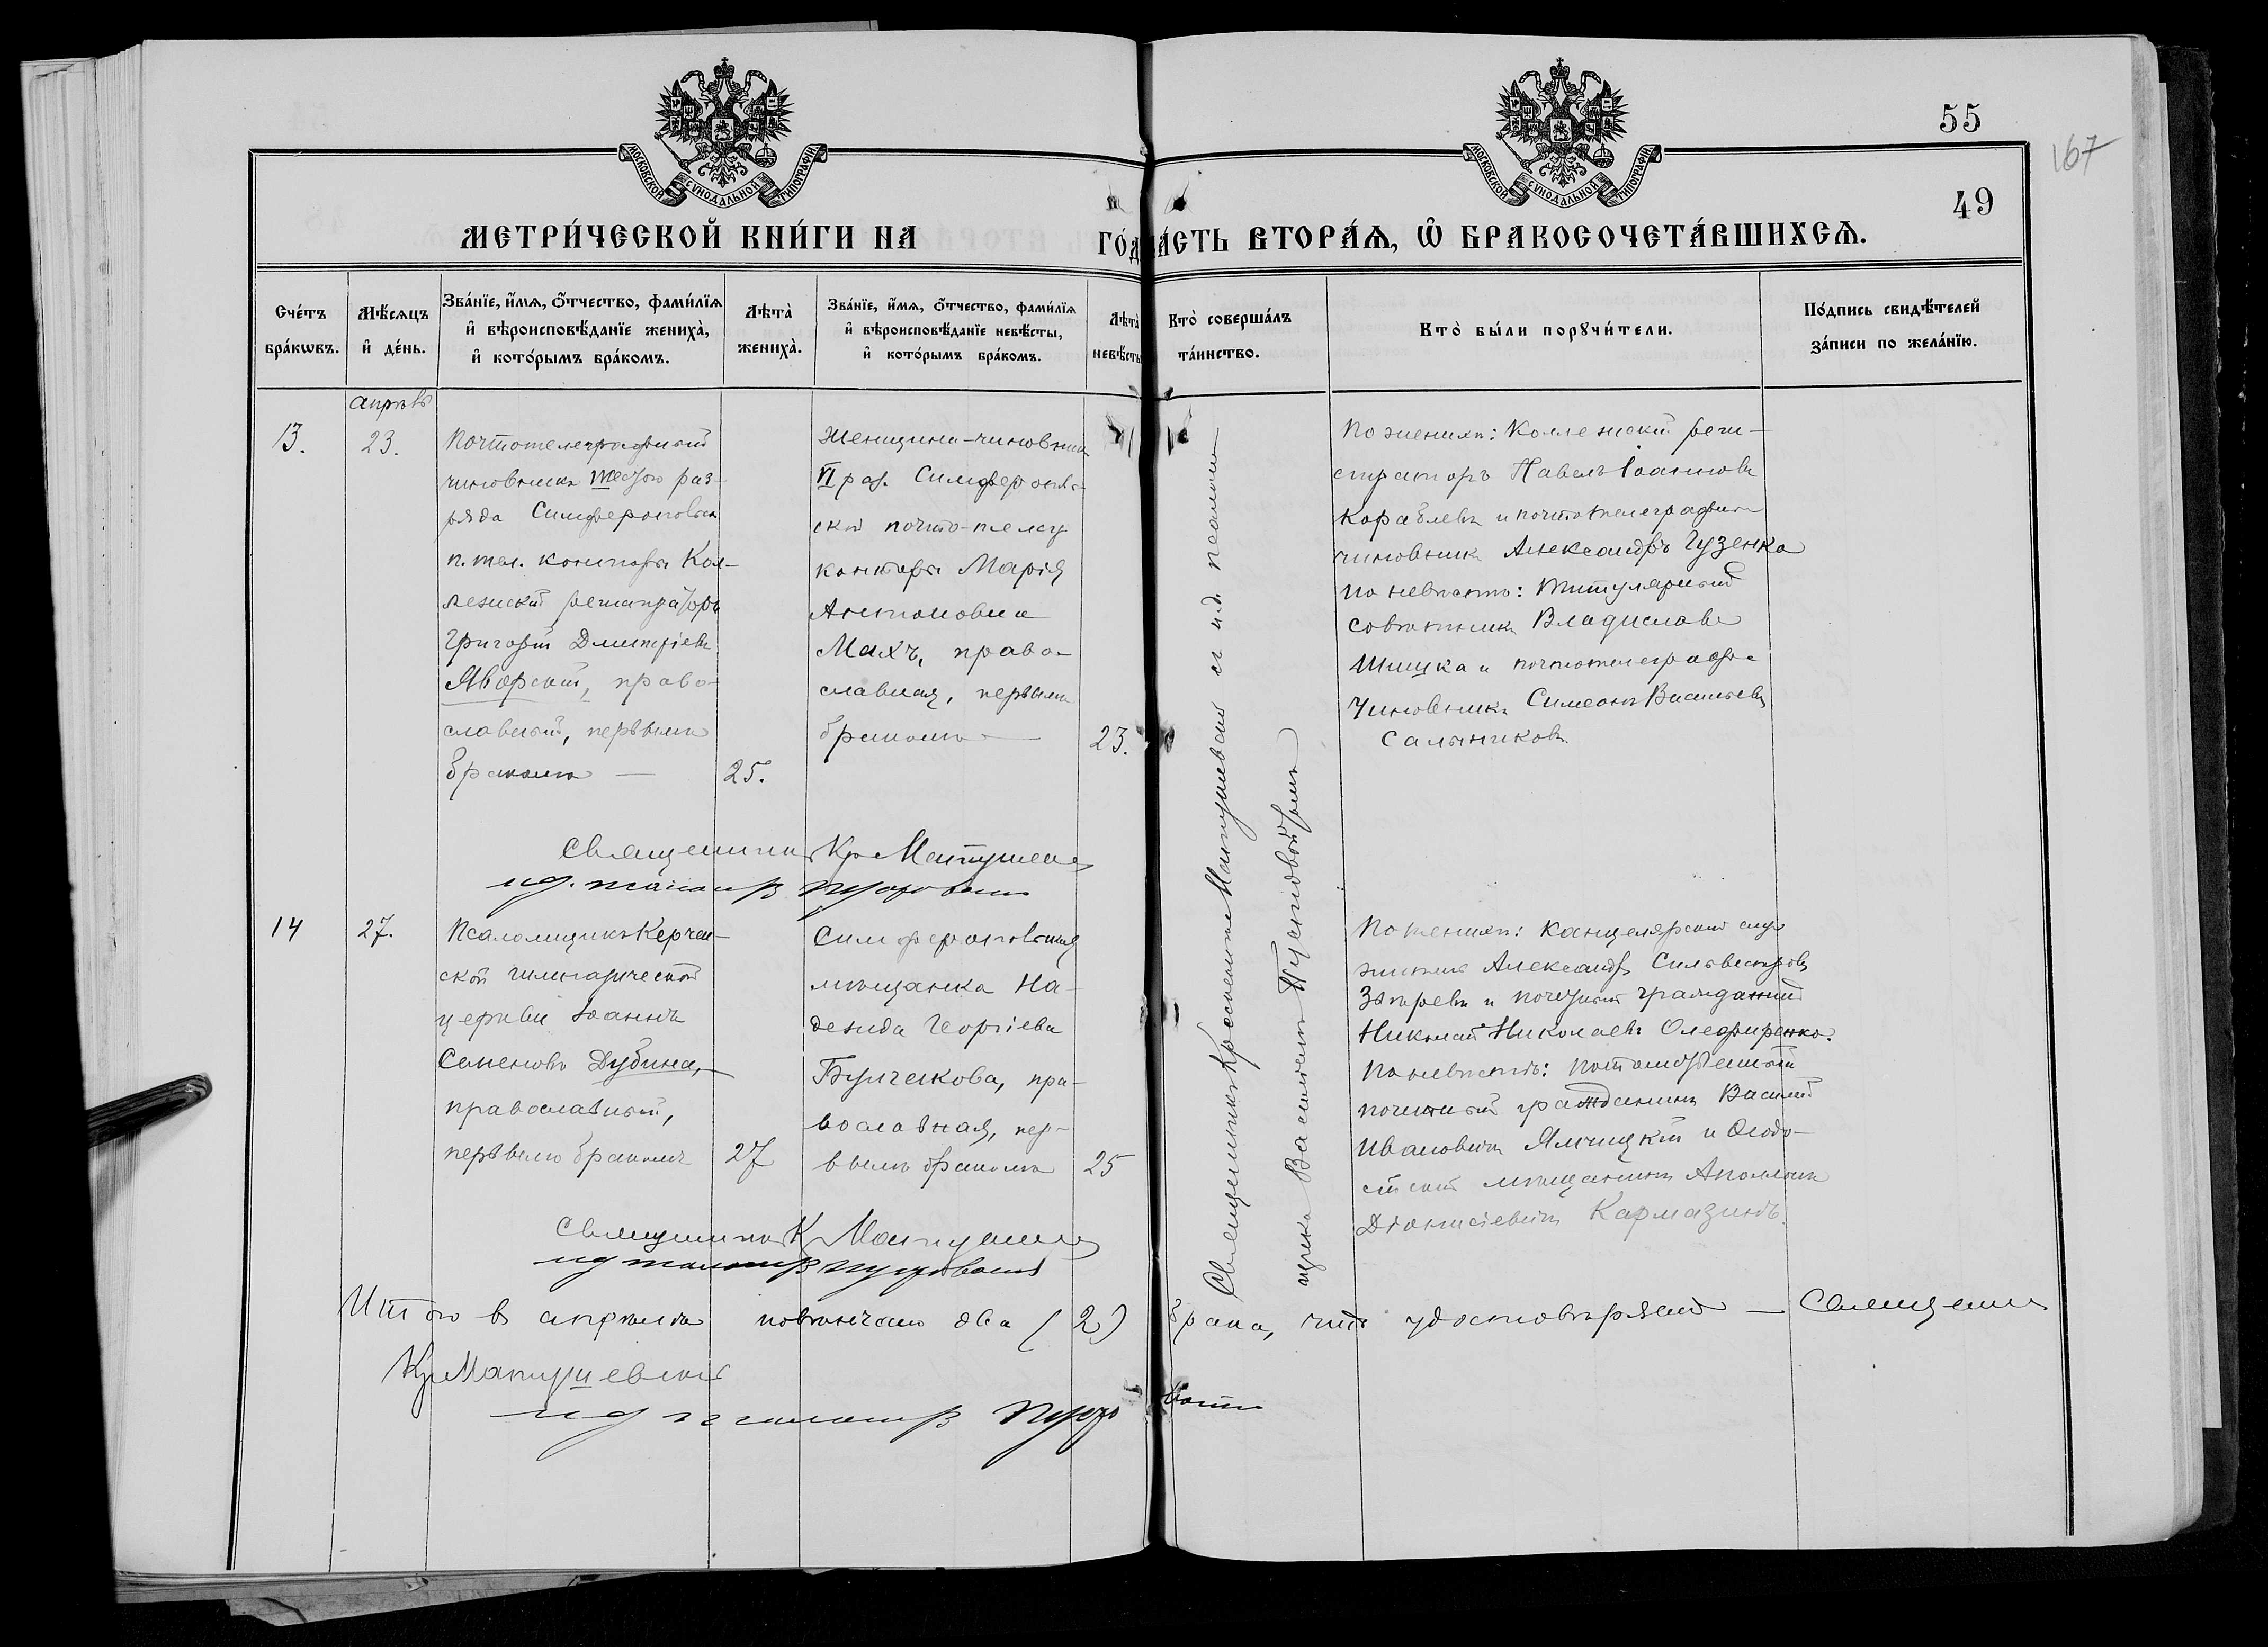 МОСКОВСКОЙ СѴНОДАЛЬНОЙ ТИПОГРАФІИ
МОСКОВСКОЙ СѴНОДАЛЬНОЙ ТИПОГРАФІИ
55
167
49
МЕТРИ́ЧЕСКОЙ КНИ́ГИ НА ГО́Д
ЧА́СТЬ ВТОРА́Ѧ, Ѡ БРАКОСОЧЕТА́ВШИХСѦ.
Сче́тъ бра́кѡвъ.
Мѣ́сѧцъ и҆ де́нь.
Зва́нїе, и҆́мѧ, ѻ҆́тчество, фами́лїѧ и҆ вѣроисповѣ́данїе жениха̀, и҆ кото́рымъ бра́комъ.
Лѣта̀ жениха̀.
Зва́нїе, и҆́мѧ, ѻ҆́тчество, фами́лїѧ и҆ вѣроисповѣ́данїе невѣ́сты, и҆ кото́рымъ бра́комъ.
Лѣта̀ невѣ́сты
Кто̀ соверша́лъ та́инство.
Кто̀ бы́ли порꙋчи́тели.
По́дпись свидѣ́телей за́писи по жела́нїю.
апрѣль
13.
23.
Почтотелеграфный
чиновникъ шестого раз-
ряда Симферопольск
п. тел. конторы Кол-
лежскій регистраторъ
Григорій Димитріевъ
Яворскій, право-
славный, первымъ
бракомъ —
25.
Женщина-чиновник
VI раз. Симферополь-
ской почто-телег
конторы Марія
Антоновна
Махъ, право-
славная, первымъ
бракомъ —
23.
Священникъ Константинъ Матушевскій съ и.д. псалом-
щика Василіемъ Пустовойтомъ
По женихѣ: Коллежскій реги-
страторъ Павелъ Іоанновъ
Кораблевъ и почтотелеграфн
чиновникъ Александръ Гузенко
по невѣстѣ: титулярный
совѣтникъ Владиславъ
Шицка и почтотелеграф.
чиновникъ Симеонъ Васильевъ
Сальниковъ
Священникъ Кр Матушев
ид. псаломщ
14
27.
Псаломщикъ Керчен-
ской гимназической
церкви Іоаннъ
Семеновъ Дубина,
православный,
первымъ бракомъ
27
Симферопольская
мѣщанка На-
дежда Георгіева
Бурчекова, пра-
вославная, пер-
вымъ бракомъ
25
По женихѣ: Канцелярскій слу
житель Александръ Сильвестровъ
и почетный гражданинъ
Николай Николаевъ Олефиренко.
По невѣстѣ: потомственный
почетный гражданинъ Василій
Ивановичъ Ялчицкій и Ѳеодо-
сійскій мѣщанинъ Аполлонъ
Діонисіевичъ Кармазинъ.
Священникъ К Матушев
ид псаломщ
Итого въ апрѣлѣ повѣнчано два (2) брака, что удостовѣряемъ — Священник
Кр Матушевскій
ид псаломщ